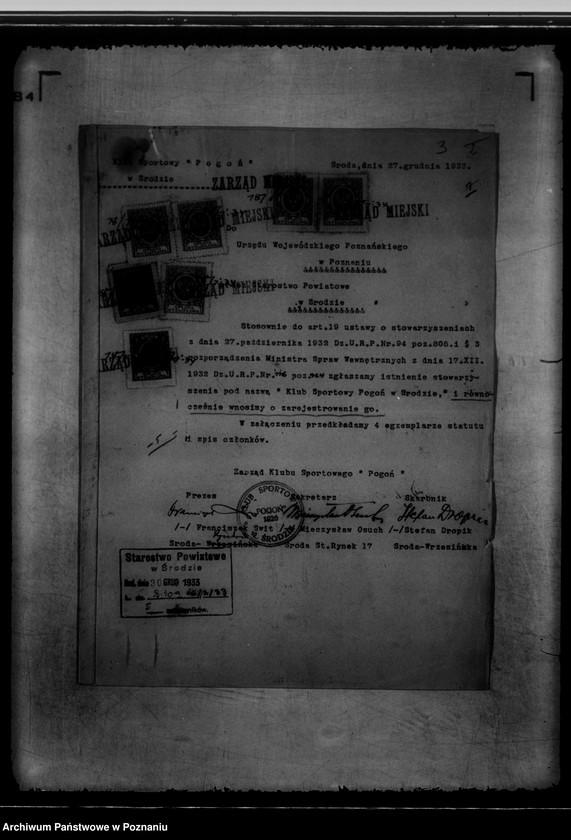 3
Klub Sportowy " P o g o ń "
Środa, dnia 27.grudnia 1932.
w Środzie
ZARZĄD MIEJSKI
ZARZĄD MIEJSKI
Do
Urzędu Wojewódzkiego Poznańskiego
w Poznaniu
Starostwo Powiatowe
w Środzie
Stosownie do art.19 ustawy o stowarzyszeniach
z dnia 27.października 1932 Dz.U.R.P.Nr.94 poz.808.i § 3
rozporządzenia Ministra Spraw Wewnętrznych z dnia 17.XII.
1932 Dz.U.R.P.Nr. poz. zgłaszamy istnienie stowarzy-
szenia pod nazwą " Klub Sportowy Pogoń w Środzie," i równo-
cześnie wnosimy o zarejestrowanie go.
W załączeniu przedkładamy 4 egzemplarze statutu
i spis członków.
Zarząd Klubu Sportowego " Pogoń "
Prezes Sekretarz Skarbnik
KLUB SPORTOWY
POGOŃ
W ŚRODZIE
/-/ Franciszek Swit /-/ Mieczysław Osuch /-/Stefan Dropik
Środa- Wrzesińska Środa St.Rynek 17 Środa-Wrzesińska
Starostwo Powiatowe
w Środzie
30 GRUD 1933
Archiwum Państwowe w Poznaniu